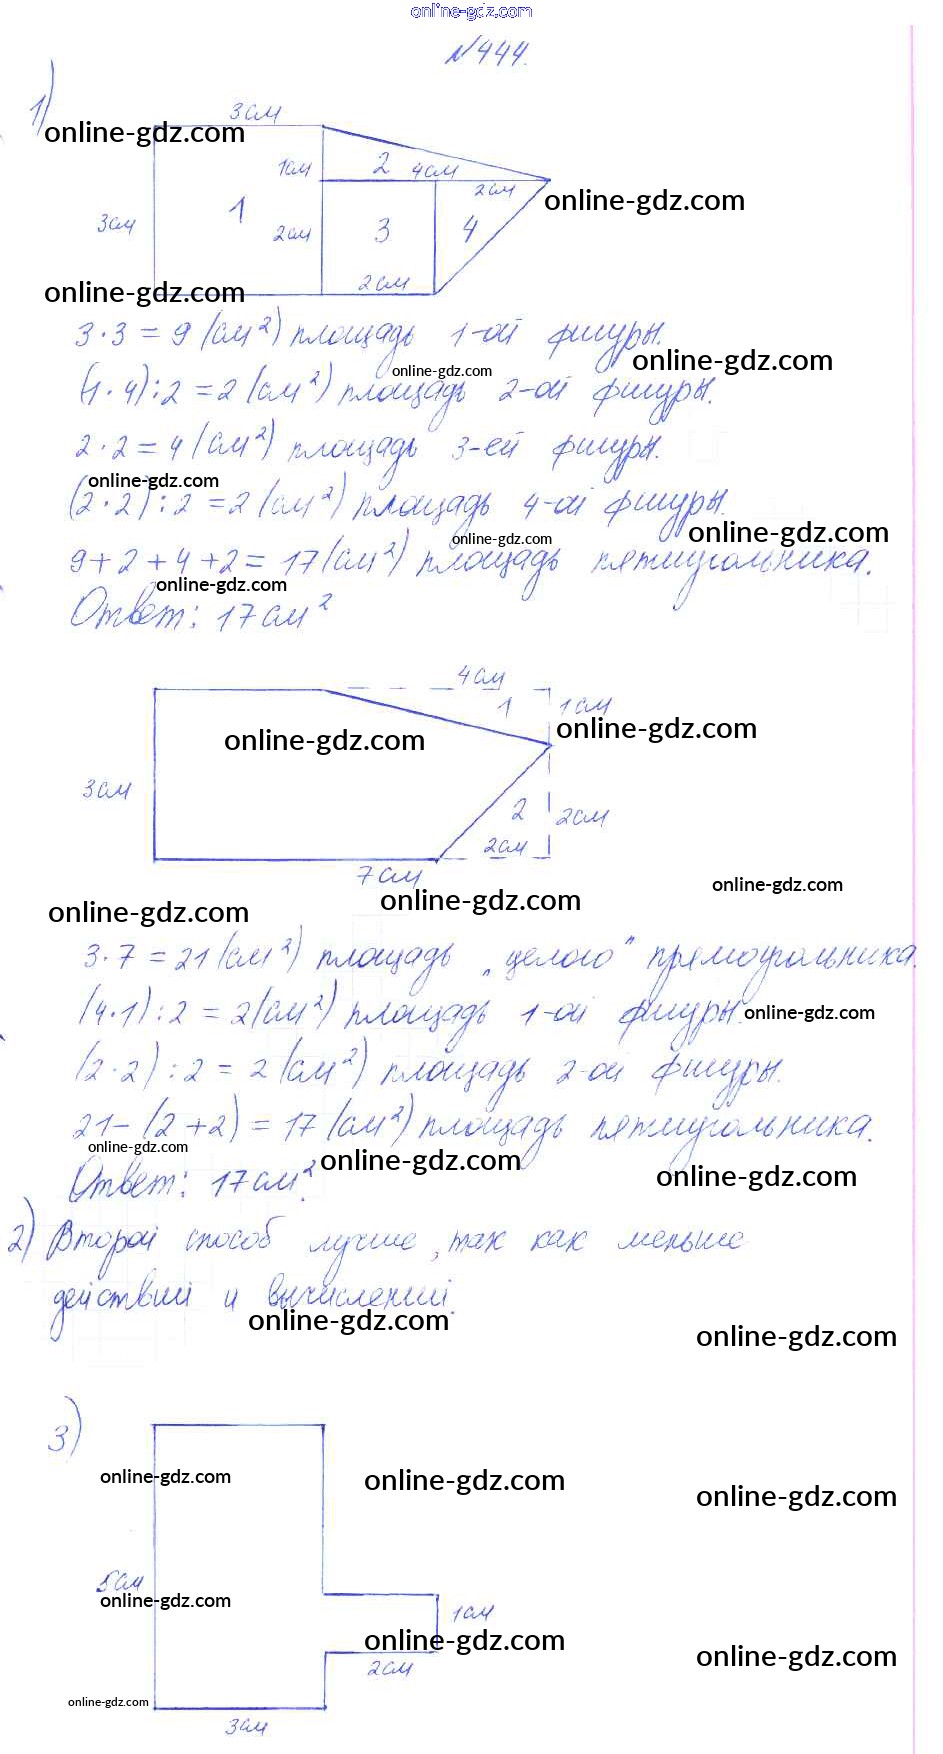 online-gdz.com
№444.
1)
3см
online-gdz.com
1см
2
4см
2см
online-gdz.com
3см
1
2см
3
4
online-gdz.com
2см
3·3=9(см²) площадь 1-ой фигуры.
online-gdz.com
online-gdz.com
(1·4):2=2(см²) площадь 2-ой фигуры.
2·2=4(см²) площадь 3-ей фигуры.
online-gdz.com
(2·2):2=2(см²) площадь 4-ой фигуры.
online-gdz.com
online-gdz.com
9+2+4+2=17(см²) площадь пятиугольника.
online-gdz.com
Ответ: 17см²
4см
1
1см
online-gdz.com
online-gdz.com
3см
2
2см
2см
7см
online-gdz.com
online-gdz.com
online-gdz.com
3·7=21(см²) площадь „целого" прямоугольника.
(4·1):2=2(см²) площадь 1-ой фигуры.
online-gdz.com
(2·2):2=2(см²) площадь 2-ой фигуры.
21-(2+2)=17(см²) площадь пятиугольника.
online-gdz.com
online-gdz.com
online-gdz.com
Ответ: 17см².
2) Второй способ лучше, так как меньше
действий и вычислений.
online-gdz.com
online-gdz.com
3)
online-gdz.com
online-gdz.com
online-gdz.com
5см
online-gdz.com
1см
online-gdz.com
online-gdz.com
2см
online-gdz.com
3см